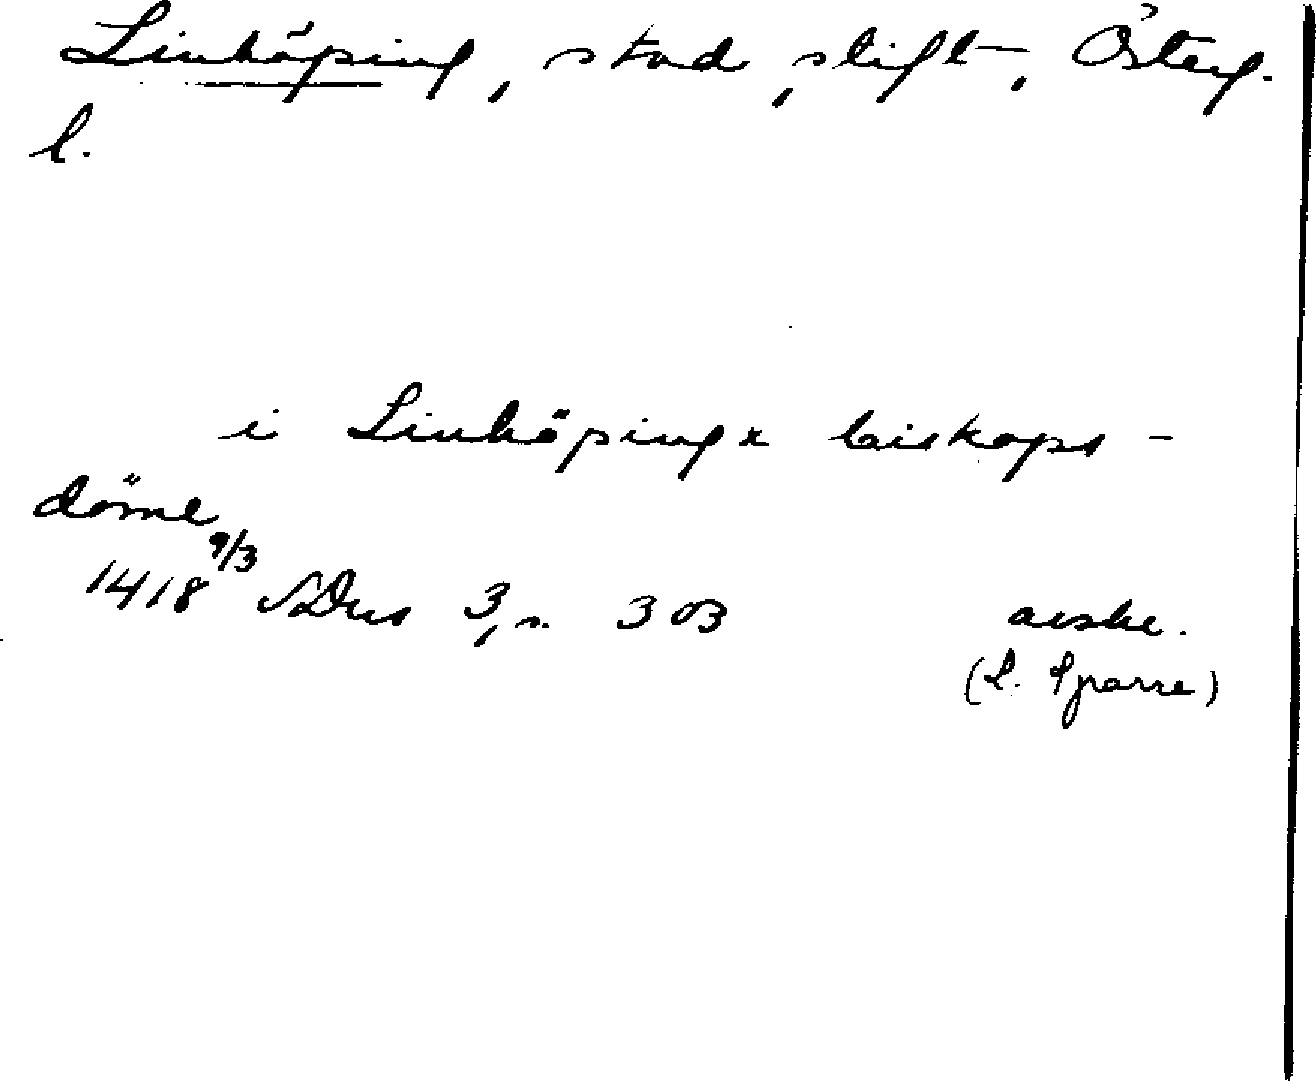 Linköping, stad, stift, Österg.
l.
i Linköpingx biskops-
döme
1418 9/3 SDns 3, s. 303 avskr.
(L. Sparre)